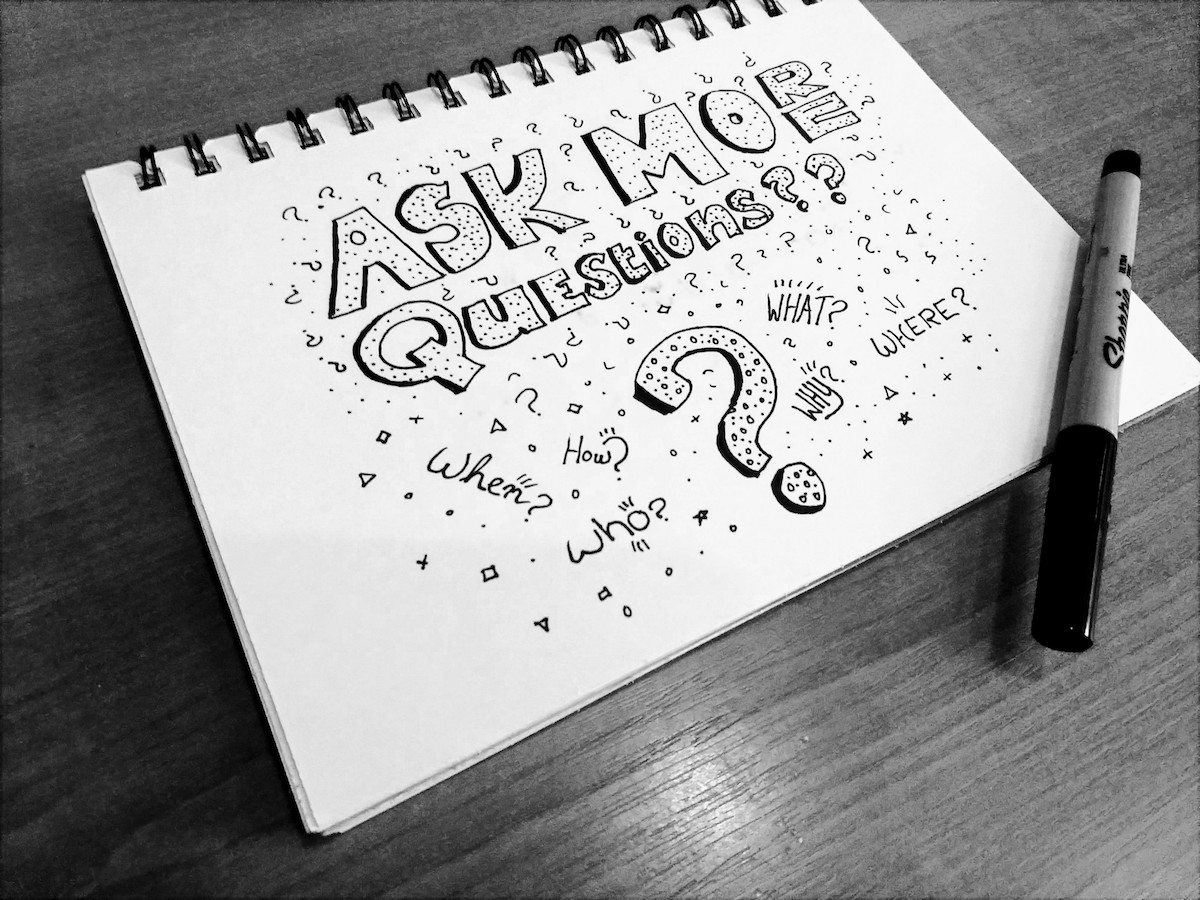 ASK MORE
Questions??
?
WHAT?
WHERE?
WHY?
How?
When?
Who?
Sharpie